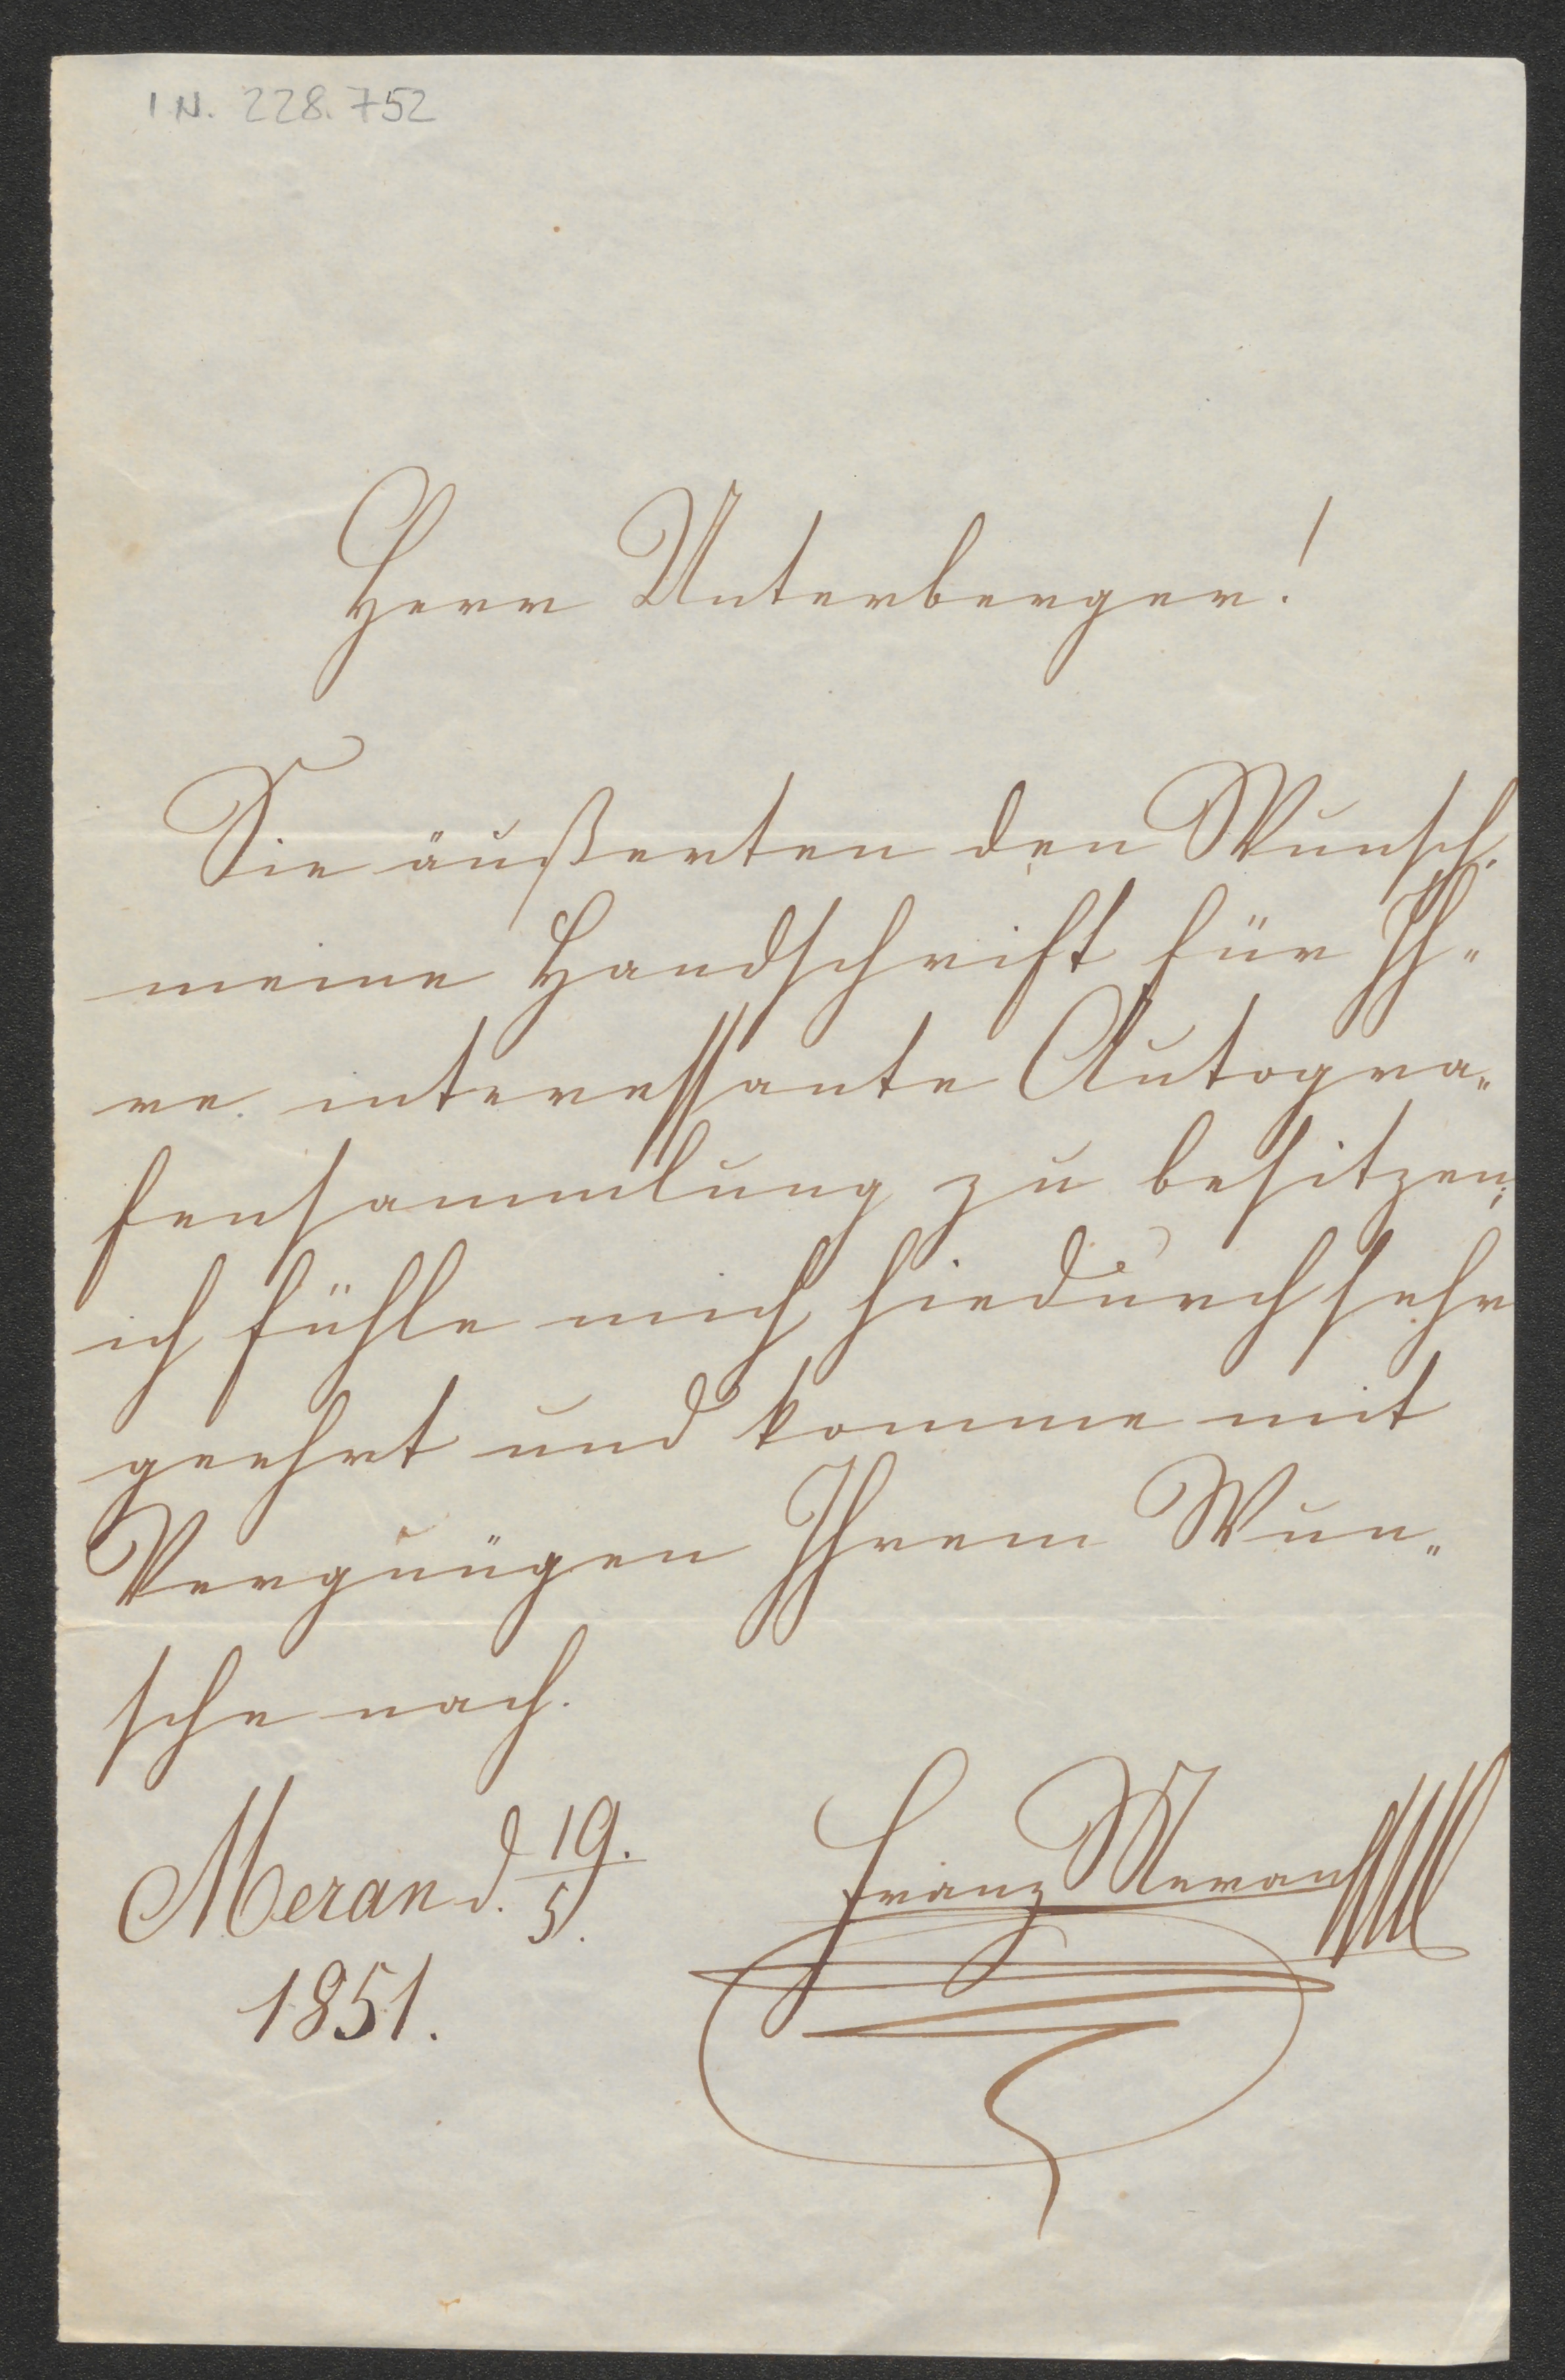 I N. 228.752
Herr Unterberger!
Sie äußerten den Wunsch,
meine Handschrift für Ih-
re interessante Autogra-
fensammlung zu besitzen;
ich fühle mich hiedurch sehr
geehrt und komme mit
Vergnügen Ihrem Wun-
sche nach.
Meran d. 19./5.
1851.
Franz Meran